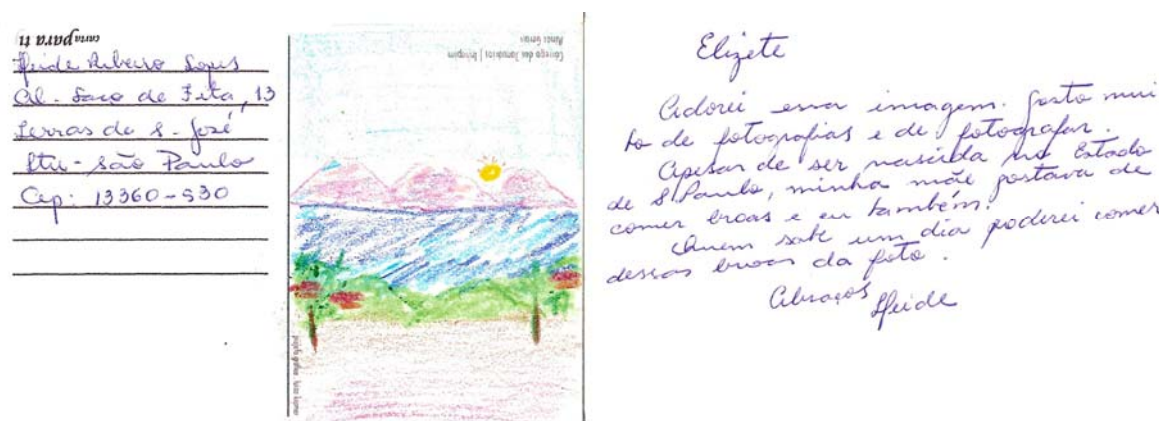 carta para ti
Ribeiro Lopes
Al. Saco de Fita, 13
Terras de S. José
Itu - São Paulo
Cep: 13360-530
Córrego das | Itinga
Minas Gerais
projeto gráfico:
Elizete
Adorei essa imagem. Gosto mui
to de fotografias e de fotografar.
Apesar de ser nascida no Estado
de S Paulo, minha mãe gostava de
comer broas e eu também.
Quem sabe um dia poderei comer
dessas broas da foto.
Abraços